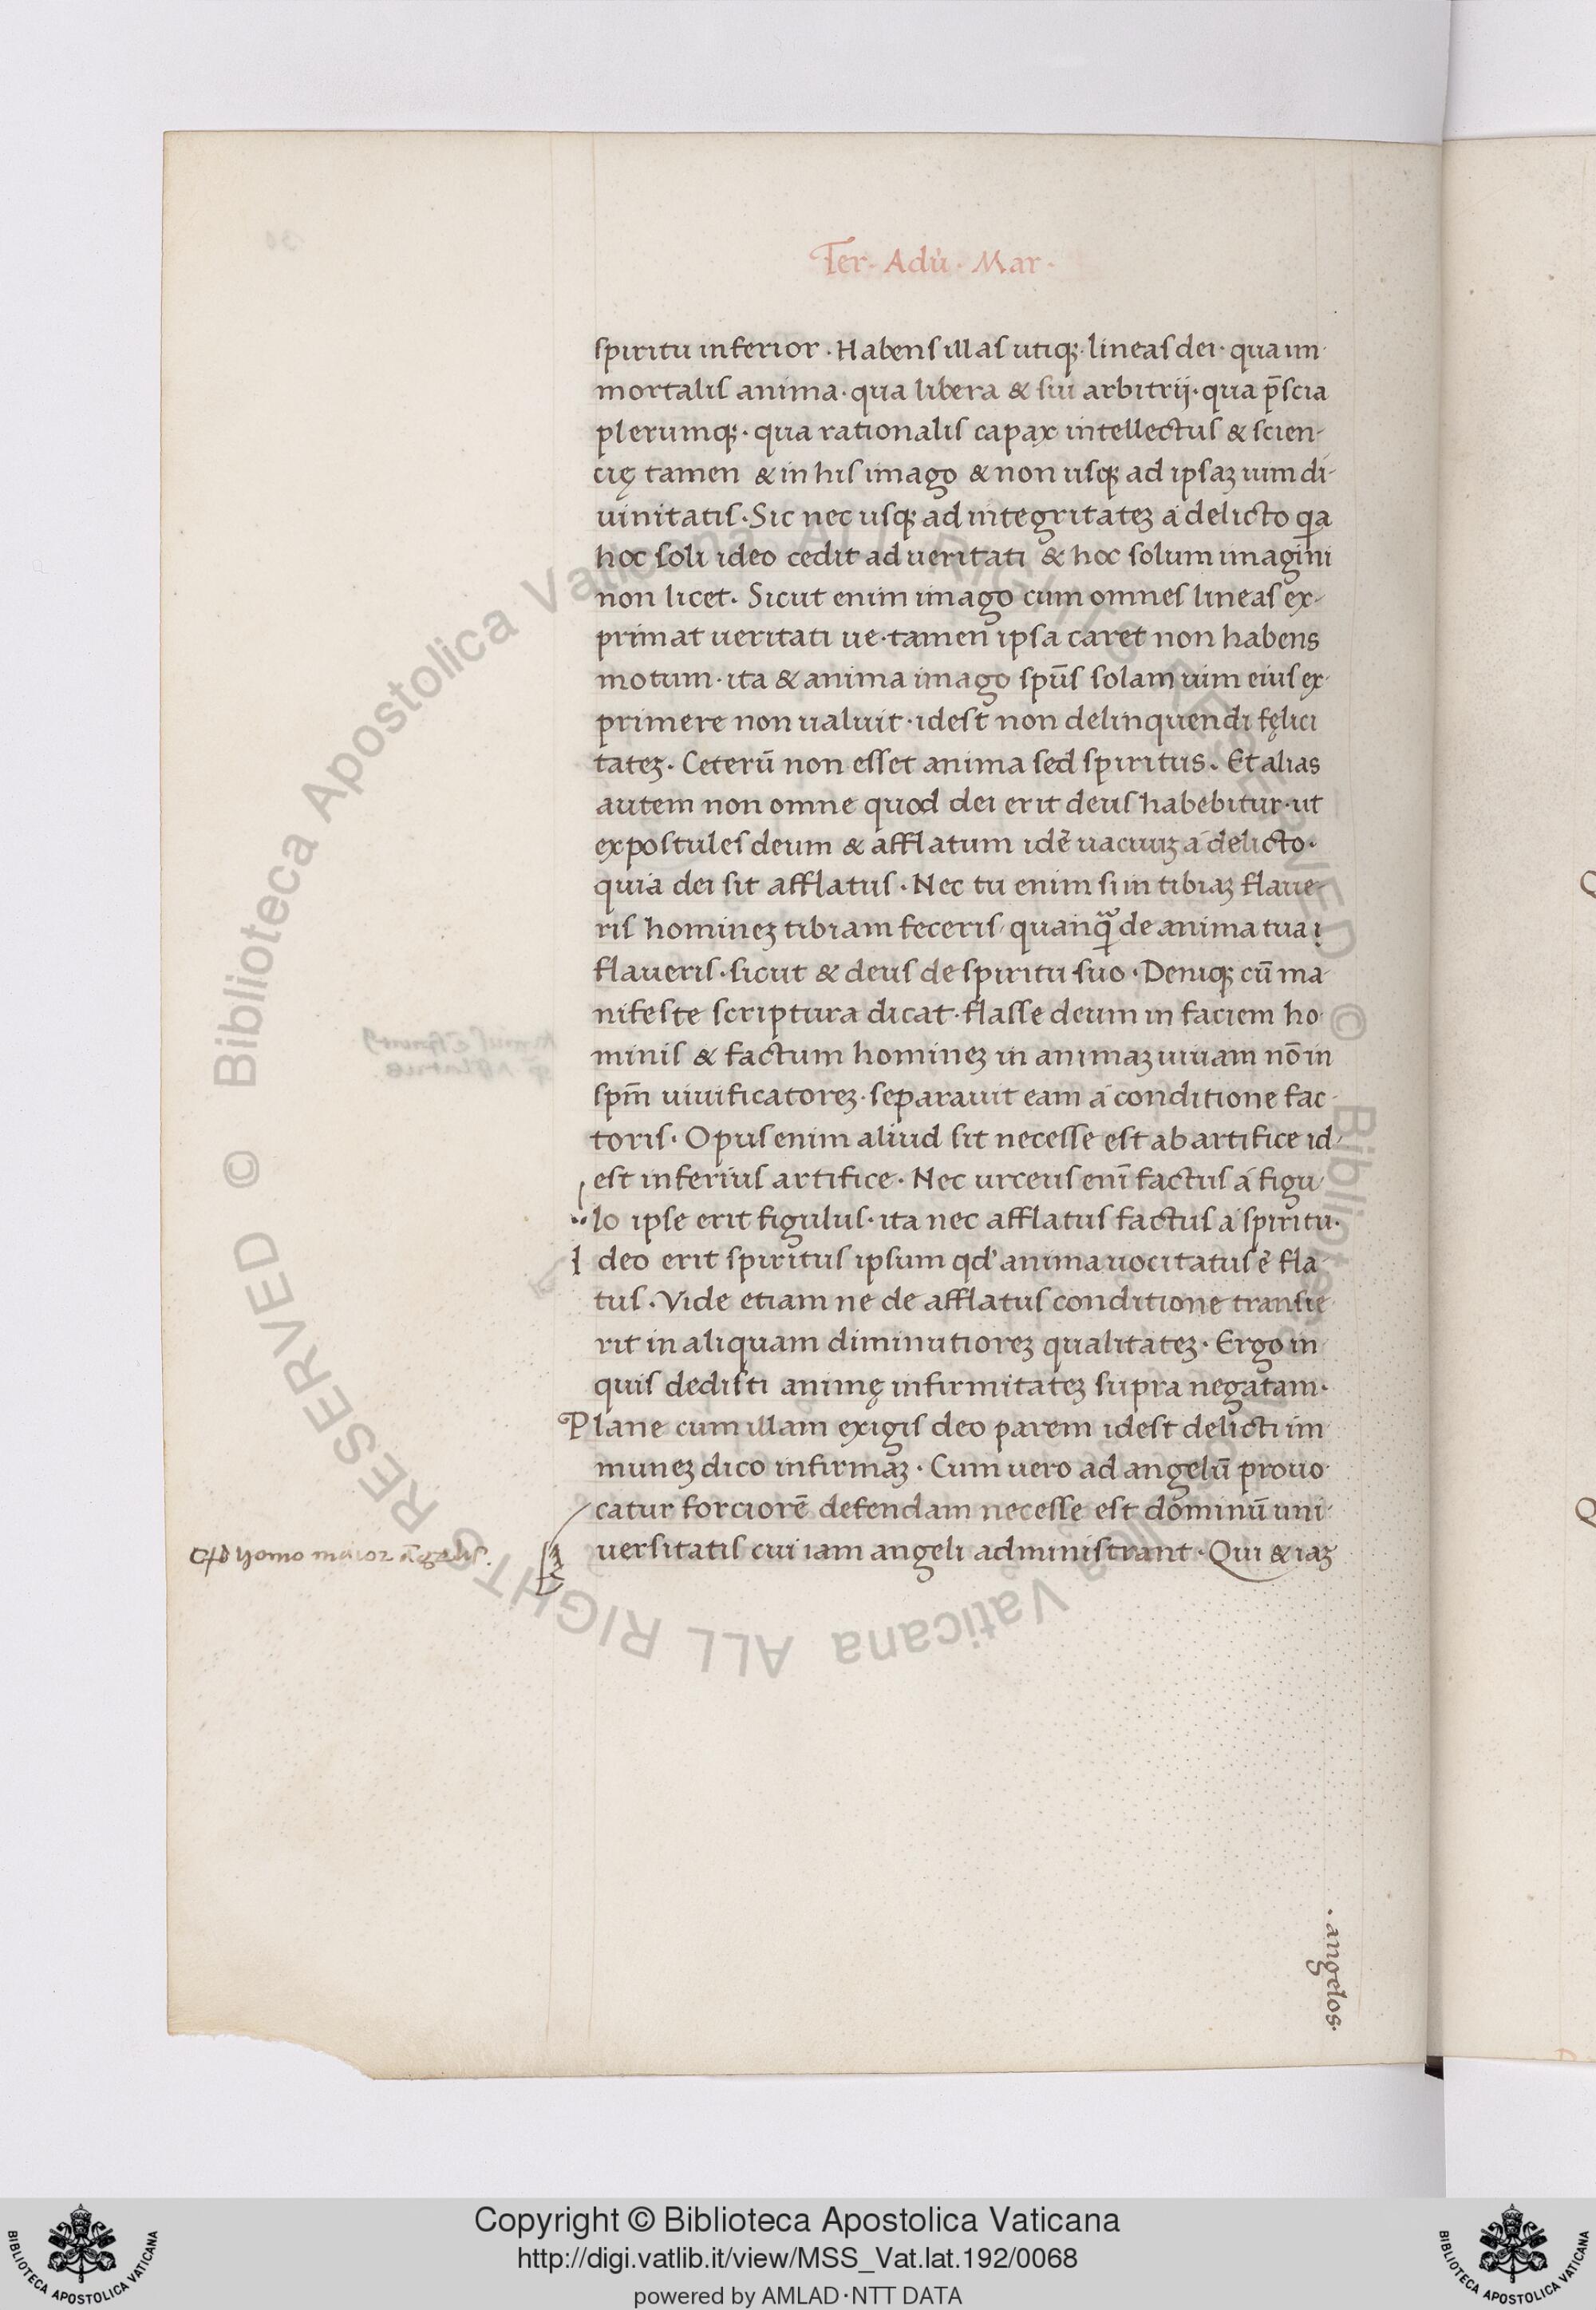 Ter. Adů. Mar.
spiritu inferior. Habens illas utiqꝫ lineas dei. qua im
mortalis anima. qua libera & sui arbitrij. qua p̄scia
plerumqꝫ. qua rationalis capax intellectus & scien-
cię tamen & in his imago & non usqꝫ ad ipsaꝫ uim di-
uinitatis. Sic nec usqꝫ ad integritateꝫ á delicto qa
hoc soli ideo cedit ad ueritati & hoc solum imagini
non licet. Sicut enim imago cum omnes lineas ex-
primat ueritati ue. tamen ipsa caret non habens
motum. ita & anima imago spūs solam uim eius ex-
primere non ualuit. idest non delinquendi fęlici
tateꝫ. Ceterū non esset anima sed spiritus. Et alias
autem non omne quod dei erit deus habebitur. ut
expostules deum & afflatum idē uacuuꝫ á delicto.
quia dei sit afflatus. Nec tu enim si in tibiaꝫ flaue-
ris homineꝫ tibiam feceris. quanqᷓ de anima tua ı
flaueris. sicut & deus de spiritu suo. Deniqꝫ cū ma
nifeste scriptura dicat. flasse deum in faciem ho
minis & factum homineꝫ in animaꝫ uiuam nō in
spm̄ uiuificatoreꝫ. separauit eam á conditione fac-
toris. Opus enim aliud sit necesse est ab artifice id-
est inferius artifice. Nec urceus enī factus á figu
lo ipse erit figulus. ita nec afflatus factus á spiritu.
l deo erit spiritus ipsum qd' anima uocitatus ē fla-
tus. Vide etiam ne de afflatus conditione transie
rit in aliquam diminutioreꝫ qualitateꝫ. Ergo in
quis dedisti animę infirmitateꝫ supra negatam.
Plane cum illam exigis deo parem idest delicti im
muneꝫ dico infirmaꝫ. Cum uero ad angelū prouo
catur forciorē defendam necesse est dominū uni-
uersitatis cui iam angeli administrant. Qui & iaꝫ
homo maior āgelis.
. angelos.
© Biblioteca Apostolica Vaticana ALL RIGHTS RESERVED © Biblioteca Apostolica Vaticana ALL RIGHTS RESERVED
Copyright © Biblioteca Apostolica Vaticana
http://digi.vatlib.it/view/MSS_Vat.lat.192/0068
powered by AMLAD·NTT DATA
BIBLIOTECA APOSTOLICA VATICANA
BIBLIOTECA APOSTOLICA VATICANA